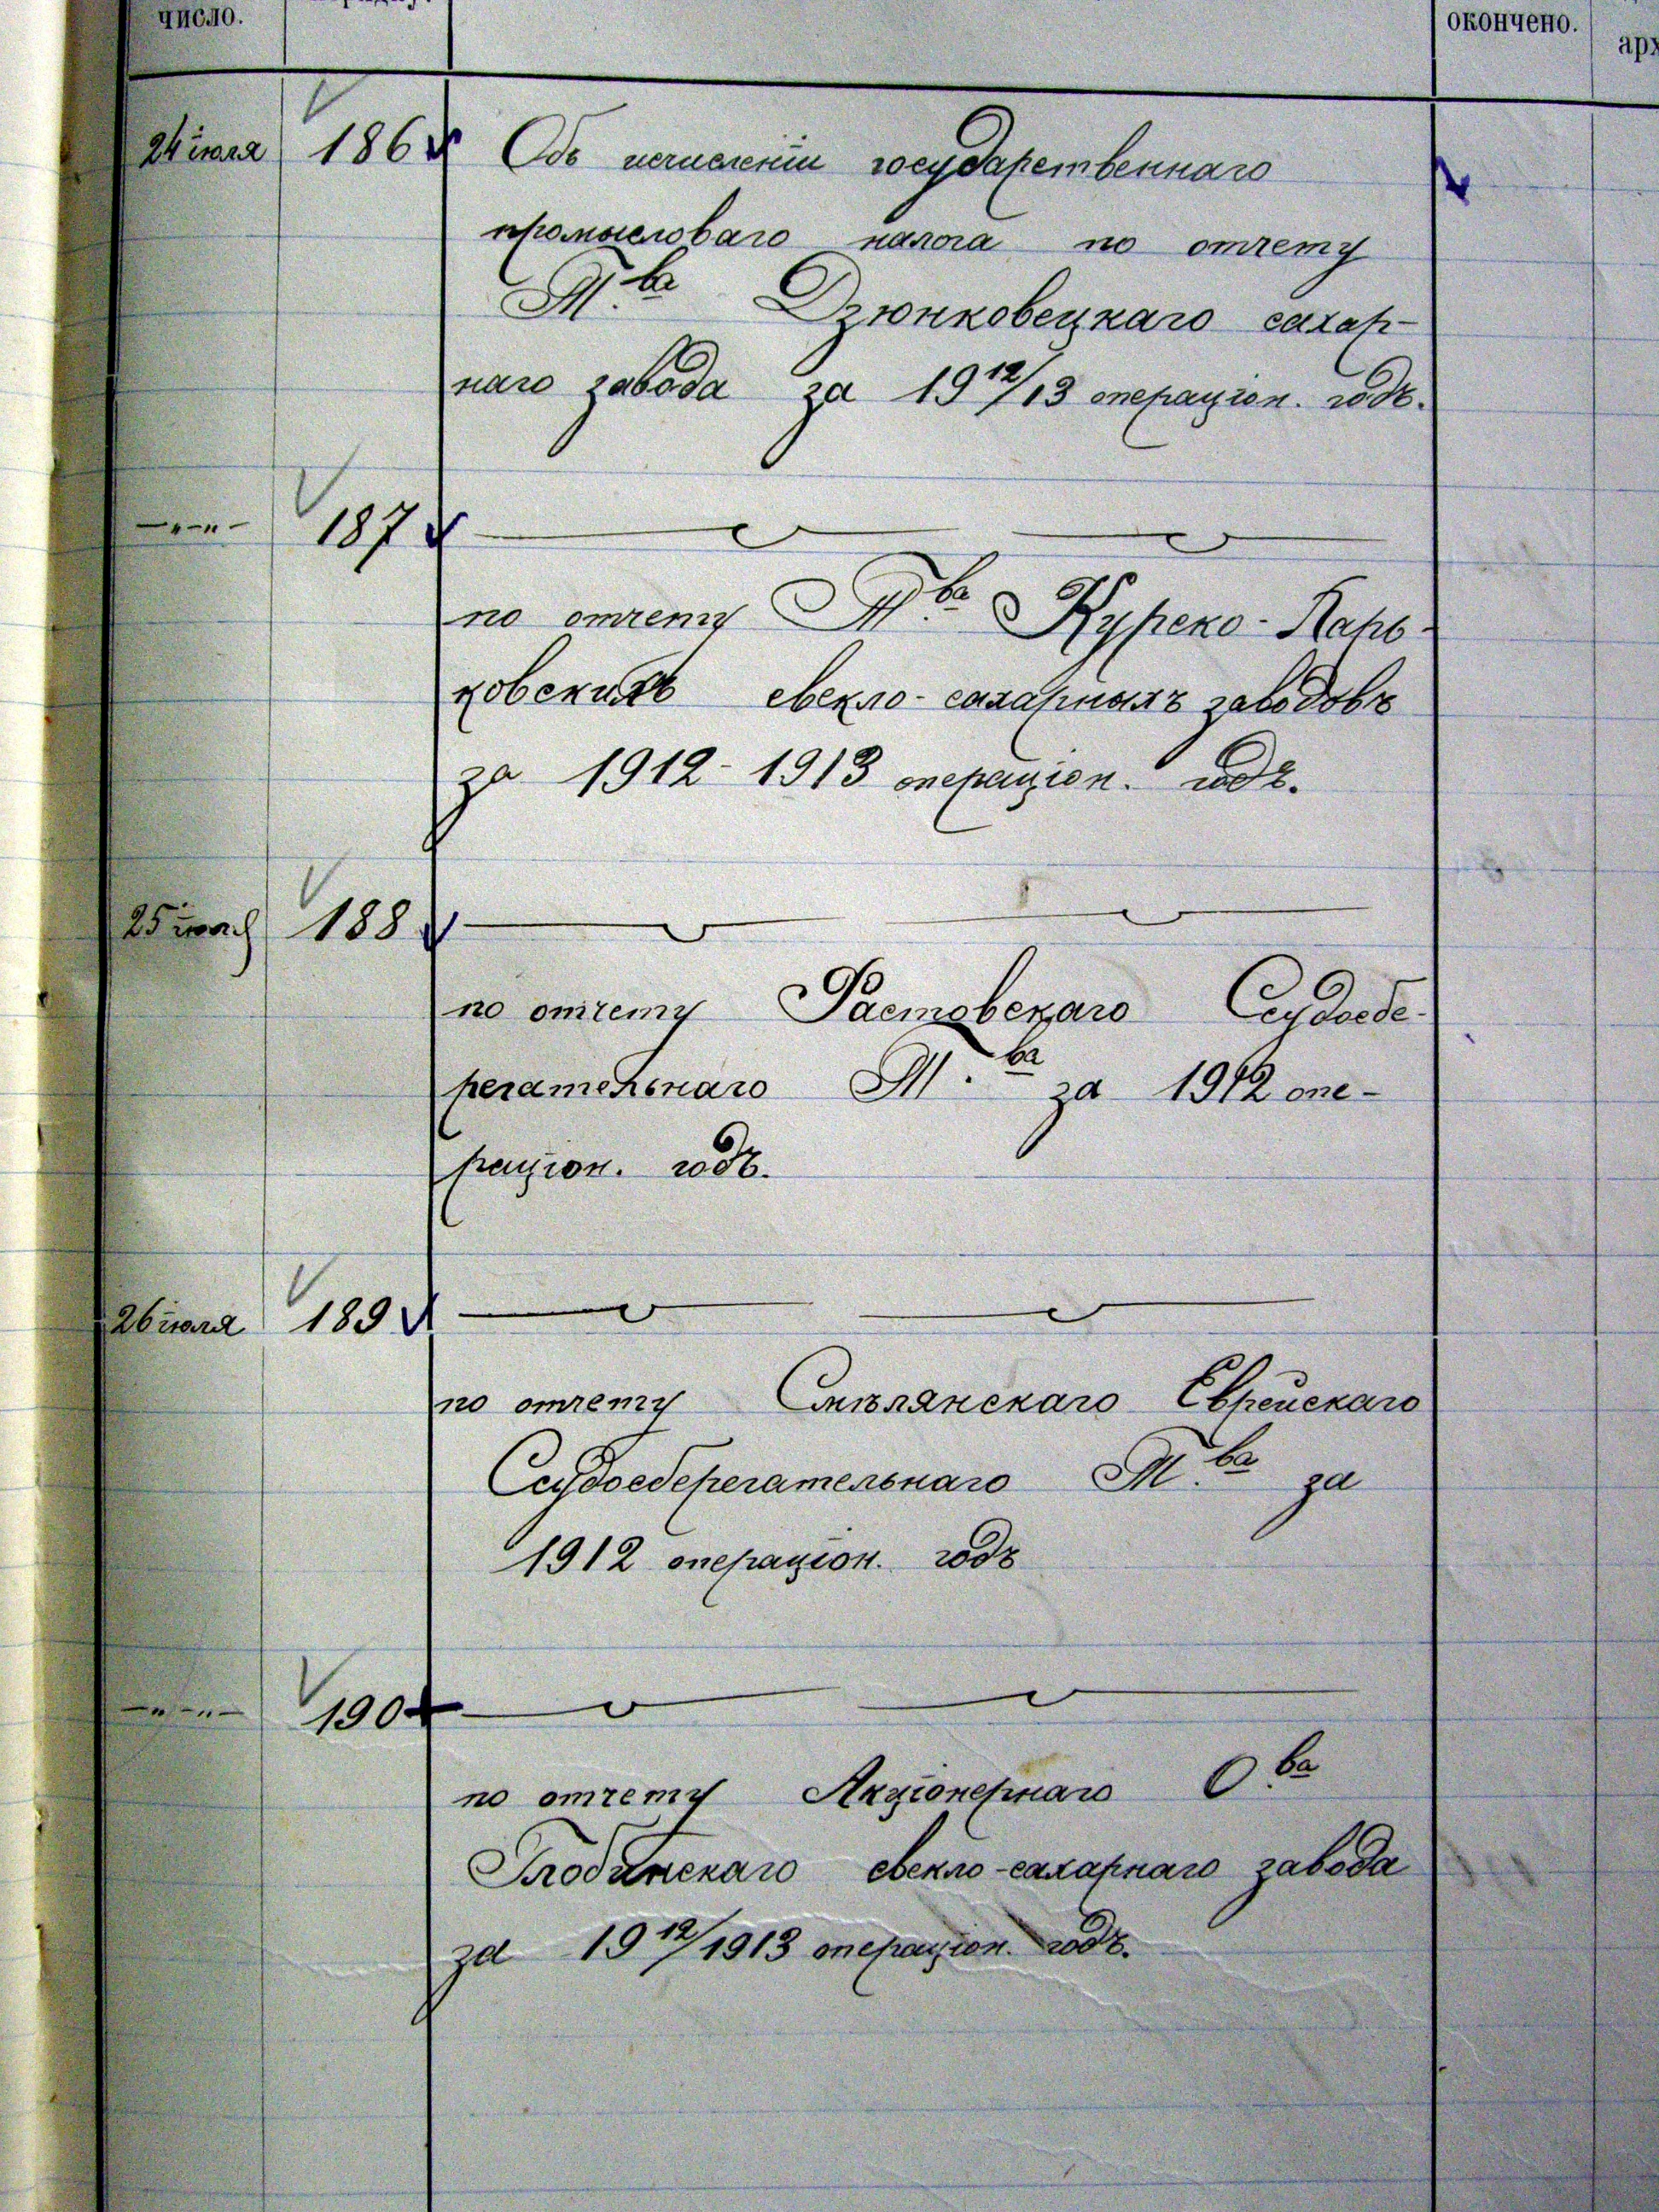 число.
окончено.
арх
24 іюля 186 Объ исчисленіи государственнаго
промысловаго налога по отчету
Т.ва Дзюнковецкаго сахар-
наго завода за 1912/13 операціон. годъ.
—„—„— 187
по отчету Т.ва Курско-Харь-
ковскихъ свекло-сахарныхъ заводовъ
за 1912-1913 операціон. годъ.
25 іюля 188
по отчету Ростовскаго Ссудосбе-
регательнаго Т.ва за 1912 опе-
раціон. годъ.
26 іюля 189
по отчету Смѣлянскаго Еврейскаго
Ссудосберегательнаго Т.ва за
1912 операціон. годъ
—„—„— 190
по отчету Акціонернаго О.ва
Глобинскаго свекло-сахарнаго завода
за 1912/1913 операціон. годъ.